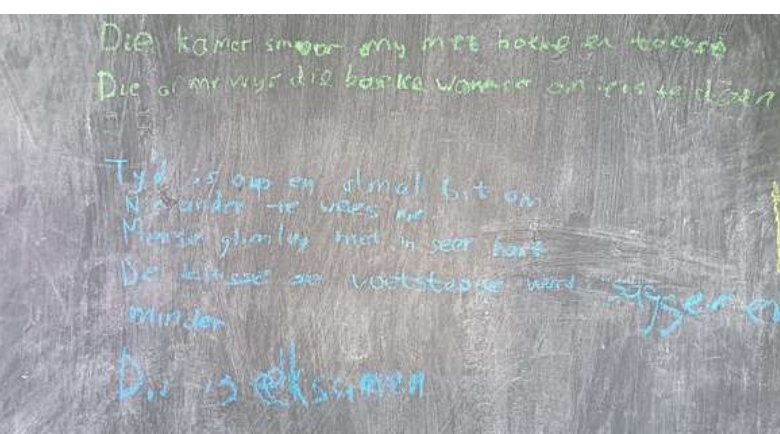 Die kamer smoor my met boeke en toetse
Die armr wys die boeke wanneer om iets te doen
Tyd is oup en almal bit om
N slander te wees nie
Mense glimlag met in seer hart
De klasse se voetstappe word sagger en
minder
Dis is eksamen